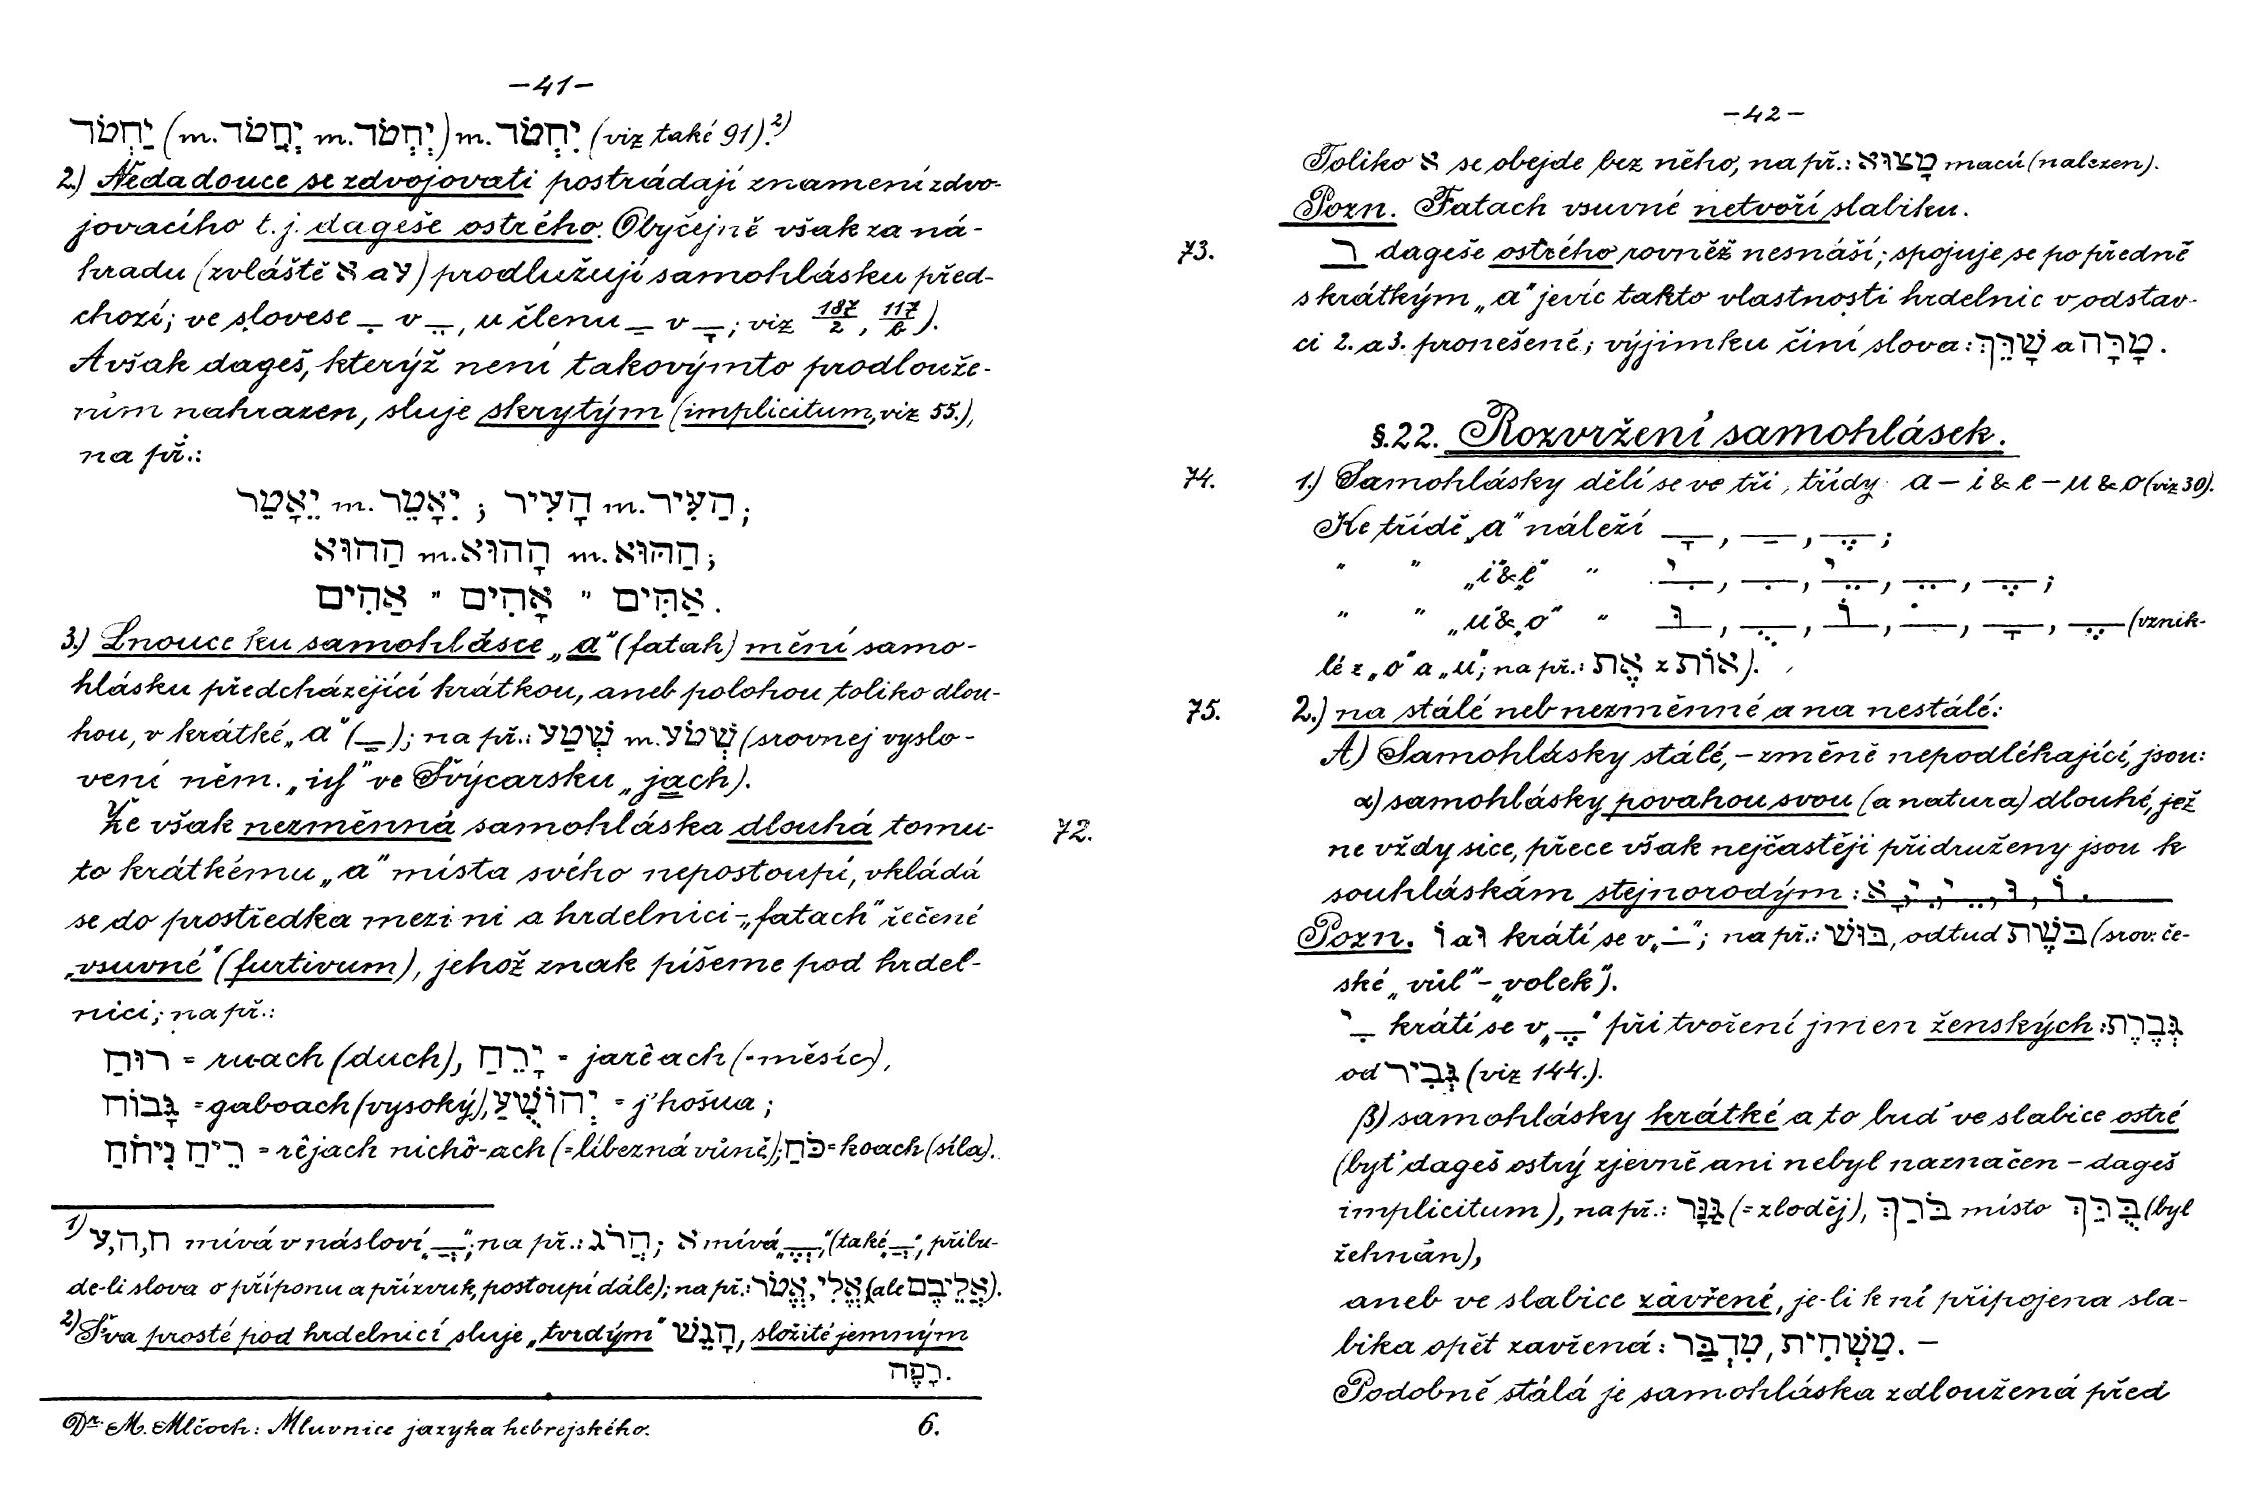 —41—
יַחְטֹר (m. יֲחֲטֹר m. יְחְטֹר) m. יִחְטֹר (viz také 91).²⁾
2.) Nedadouce se zdvojovati postrádají znamení zdvo-
jovacího t. j. dageše ostrého. Obyčejně však za ná-
hradu (zvláště א a ע) prodlužují samohlásku před-
chozí; ve slovese ִ v ֵ, u členu ַ v ָ; viz 187/2, 117/b).
Avšak dageš, kterýž není takovýmto prodlouže-
ním nahrazen, sluje skrytým (implicitum, viz 55.),
na př.:
יֵאָטֵר m. יִאָּטֵר ; הָעִיר m. הַעִּיר;
הַהוּא m. הָהוּא m. הַהּוּא;
אַחִים " אָחִים " אַחִּים.
3.) Lnouce ku samohlásce „a" (fatah) mění samo-
hlásku předcházející krátkou, aneb polohou toliko dlou-
hou, v krátké „a" ( ַ ); na př.: שְׁטַע m. שְׁטֹע (srovnej vyslo-
vení něm. „ich" ve Švýcarsku „jach).
Že však nezměnná samohláska dlouhá tomu- 72.
to krátkému „a" místa svého nepostoupí, vkládá
se do prostředka mezi ni a hrdelnici – „fatach" řečené
„vsuvné" (furtivum), jehož znak píšeme pod hrdel-
nici; na př.:
רוּחַ = ruach (duch), יָרֵחַ = jarêach (=měsíc),
גָּבוֹחַ = gaboach (vysoký), יְהוֹשֻׁעַ = j'hošua;
רֵיחַ נִיחֹחַ = rêjach nichô-ach (=líbezná vůně); כֹּחַ = koach (síla).
1) ח, ה, ע mívá v násloví „ֲ"; na př.: הֲרֹג; א mívá „ֱ", (také „ֲ", přibu-
de-li slova o příponu a přízvuk, postoupí dále); na př.: אֱטֹר, אֱלִי (ale אֲלֵיכֶם).
2) Šva prosté pod hrdelnicí sluje „tvrdým" חָבֵשׁ, složité jemným
רָפֶה.
Dr. M. Mlčoch: Mluvnice jazyka hebrejského. 6.
—42—
Toliko א se obejde bez něho, na př.: מָצוּא macú (nalezen).
Pozn. Fatach vsuvné netvoří slabiku.
73. ר dageše ostrého rovněž nesnáší; spojuje se popředně
s krátkým „a" jevíc takto vlastnosti hrdelnic v odstav-
ci 2. a 3. pronešené; výjimku činí slova: שָׁרֵּךְ a מָרָּה.
§.22. Rozvržení samohlásek.
74. 1.) Samohlásky dělí se ve tři třídy a – i & e – u & o (viz 30).
Ke třídě „a" náleží ָ, ַ, ֶ;
" " „i" & „e" " ִי, ִ, ֵי, ֵ, ֶ;
" " „u" & „o" " וּ, ֻ, וֹ, ֹ, ָ, ֶ (vznik-
lé z „o" a „u"; na př.: אֶת z אוֹת).
75. 2.) na stálé neb nezměnné a na nestálé:
A) Samohlásky stálé, – změně nepodlékající, jsou:
α) samohlásky povahou svou (a natura) dlouhé, jež
ne vždy sice, přece však nejčastěji přidruženy jsou k
souhláskám stejnorodým: ָא, ֶי, ֵי, ִי, וּ, וֹ.
Pozn. וֹ a וּ krátí se v „ֹ"; na př.: בּוּשׁ, odtud בֹּשֶׁת (srov. če-
ské „vůl" – „volek").
ִי krátí se v „ֶ" při tvoření jmen ženských: גְּבֶרֶת
od גְּבִיר (viz 144.).
β) samohlásky krátké a to buď ve slabice ostré
(byť dageš ostrý zjevně ani nebyl naznačen – dageš
implicitum), na př.: גַּנָּר (=zloděj), בֹּרַךְ místo בֻּרַּךְ (byl
žehnán),
aneb ve slabice závřené, je-li k ní připojena sla-
bika opět zavřená: מַשְׁחִית, מִדְבַּר. –
Podobně stálá je samohláska zdloužená před